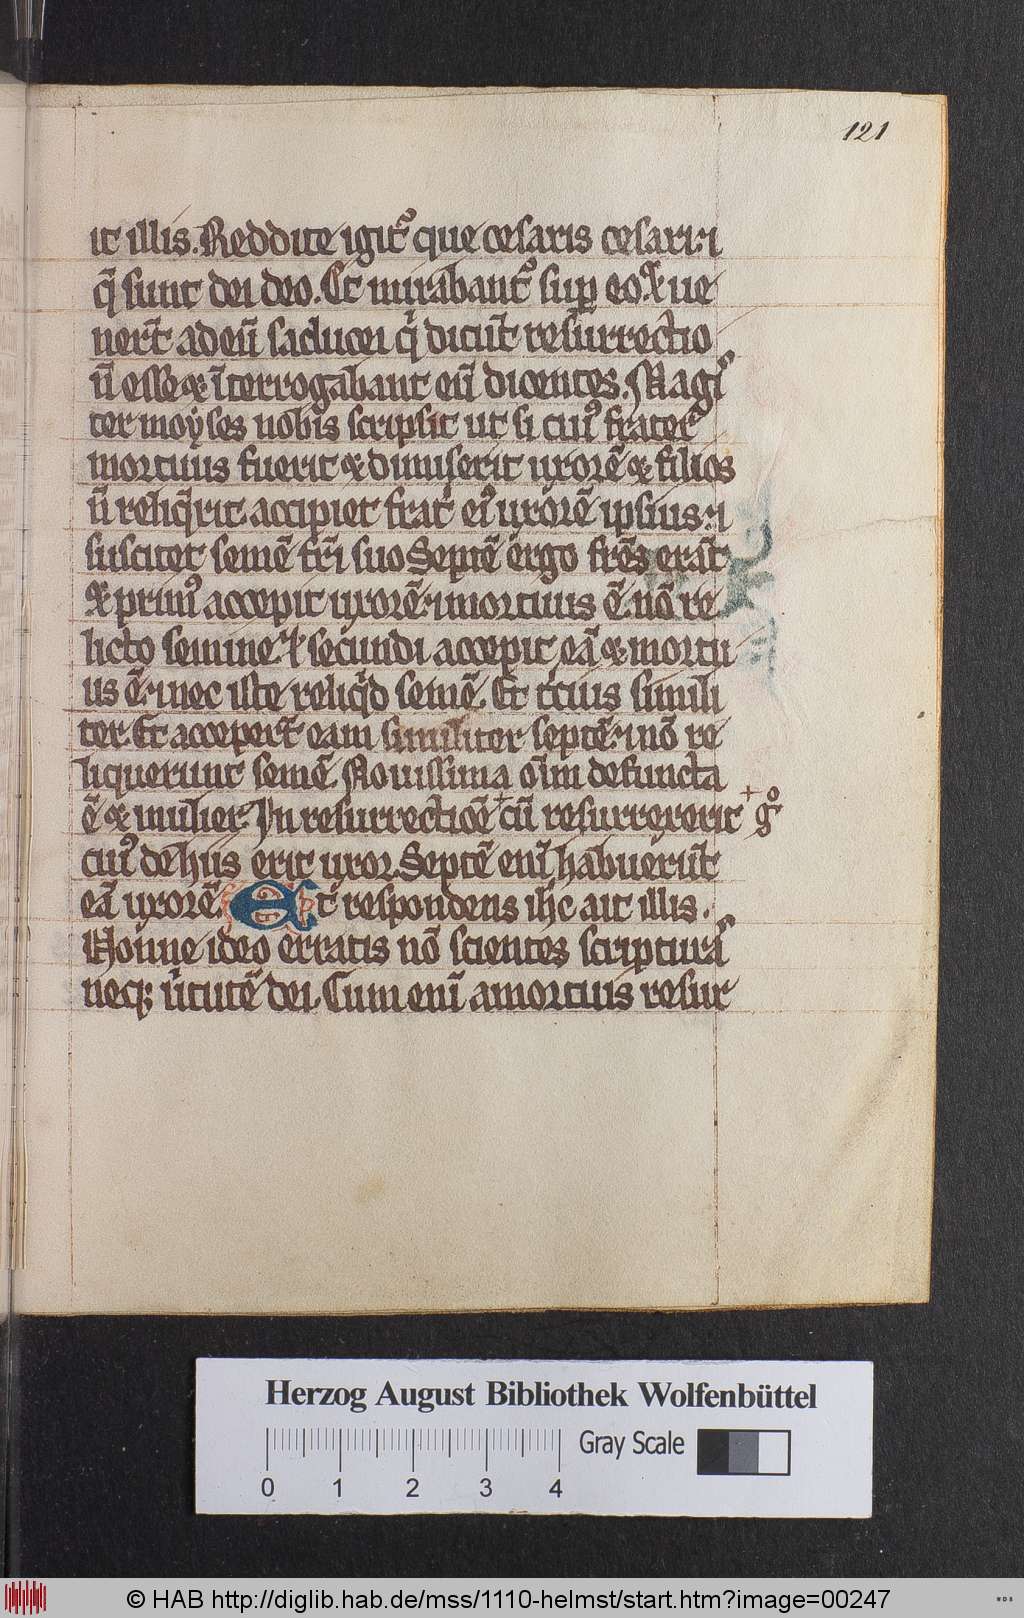 121
it illis. Reddite igit᷑ que cesaris cesari ⁊
q̄ sunt dei deo. Et mirabant᷑ suꝑ eo. Et ue
nert̄ ad eū saducei q̄ dicūt resurrectio
n̄ esse ⁊ īterrogabant eū dicentes. Magis
ter moyses nobis scripsit ut si cuiꝰ frater
mortuus fuerit ⁊ dimiserit uxorē ⁊ filios
n̄ reliq̄rit accipiet frat᷑ eiꝰ uxorē ipsius ⁊
suscitet semē fr̄i suo Septē ergo fr̄es erāt
⁊ primꝰ accepit uxorē ⁊ mortuus ē nō re
licto semine. Et secundi accepit eā ⁊ mortu
us ē ⁊ nec iste reliq̄d semē. Et tcius simili
ter. Et accepert̄ eam similiter septē ⁊ nō re
liquerunt semē. Nouissima oīm defuncta
ē ⁊ mulier. In resurrectiōe + cū resurrexerit + gͦ
cuiꝰ de hiis erit uxor. Septē enī habuerūt
eā uxorē. Et respondens ih̄c ait illis.
Nonne ideo erratis nō scientes scripturas
neqꝫ u̾tutē dei. Cum enī a mortuis resur
Herzog August Bibliothek Wolfenbüttel
Gray Scale
0 1 2 3 4
© HAB http://diglib.hab.de/mss/1110-helmst/start.htm?image=00247